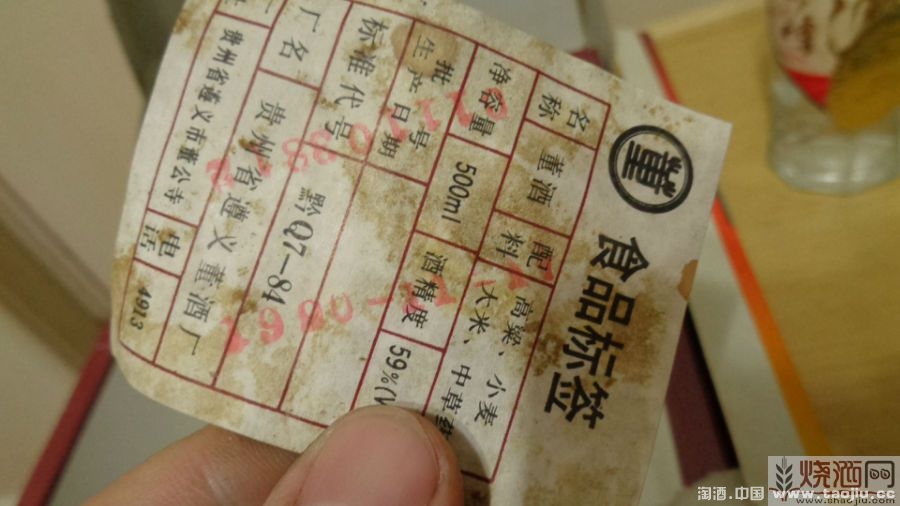 董
食品标签
名称 董酒 配料 高粱、小麦
大米、中草
净容量 500ml 酒精度 59%(V
批号
生产日期
标准代号 黔Q7-84
厂名 贵州省遵义董酒厂
贵州省遵义市董公寺 电话 4913
烧酒网
www.shaojiu.com
淘酒.中国 www.taojiu.cc